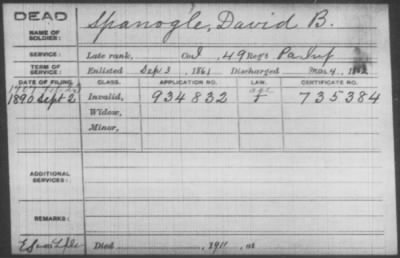 DEAD
NAME OF SOLDIER: Spanogle, David B.
SERVICE: Late rank, Co. I, 49 Reg't Pa Inf
TERM OF SERVICE: Enlisted Sep. 3, 1861 Discharged Mar 4, 1863
DATE OF FILING. CLASS. APPLICATION NO. LAW. CERTIFICATE NO.
age
1890 Sept 2 Invalid, 934832 735384
Widow,
Minor,
ADDITIONAL SERVICES:
REMARKS:
Died , 1911, at